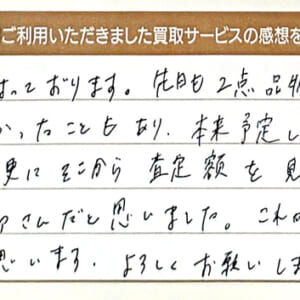 ご利用いただきました買取サービスの感想を
まっております。先日も2点品物
かったこともあり、本来予定し
更にそこから査定額を見
さんだと思いました。これか
思います。よろしくお願いしま